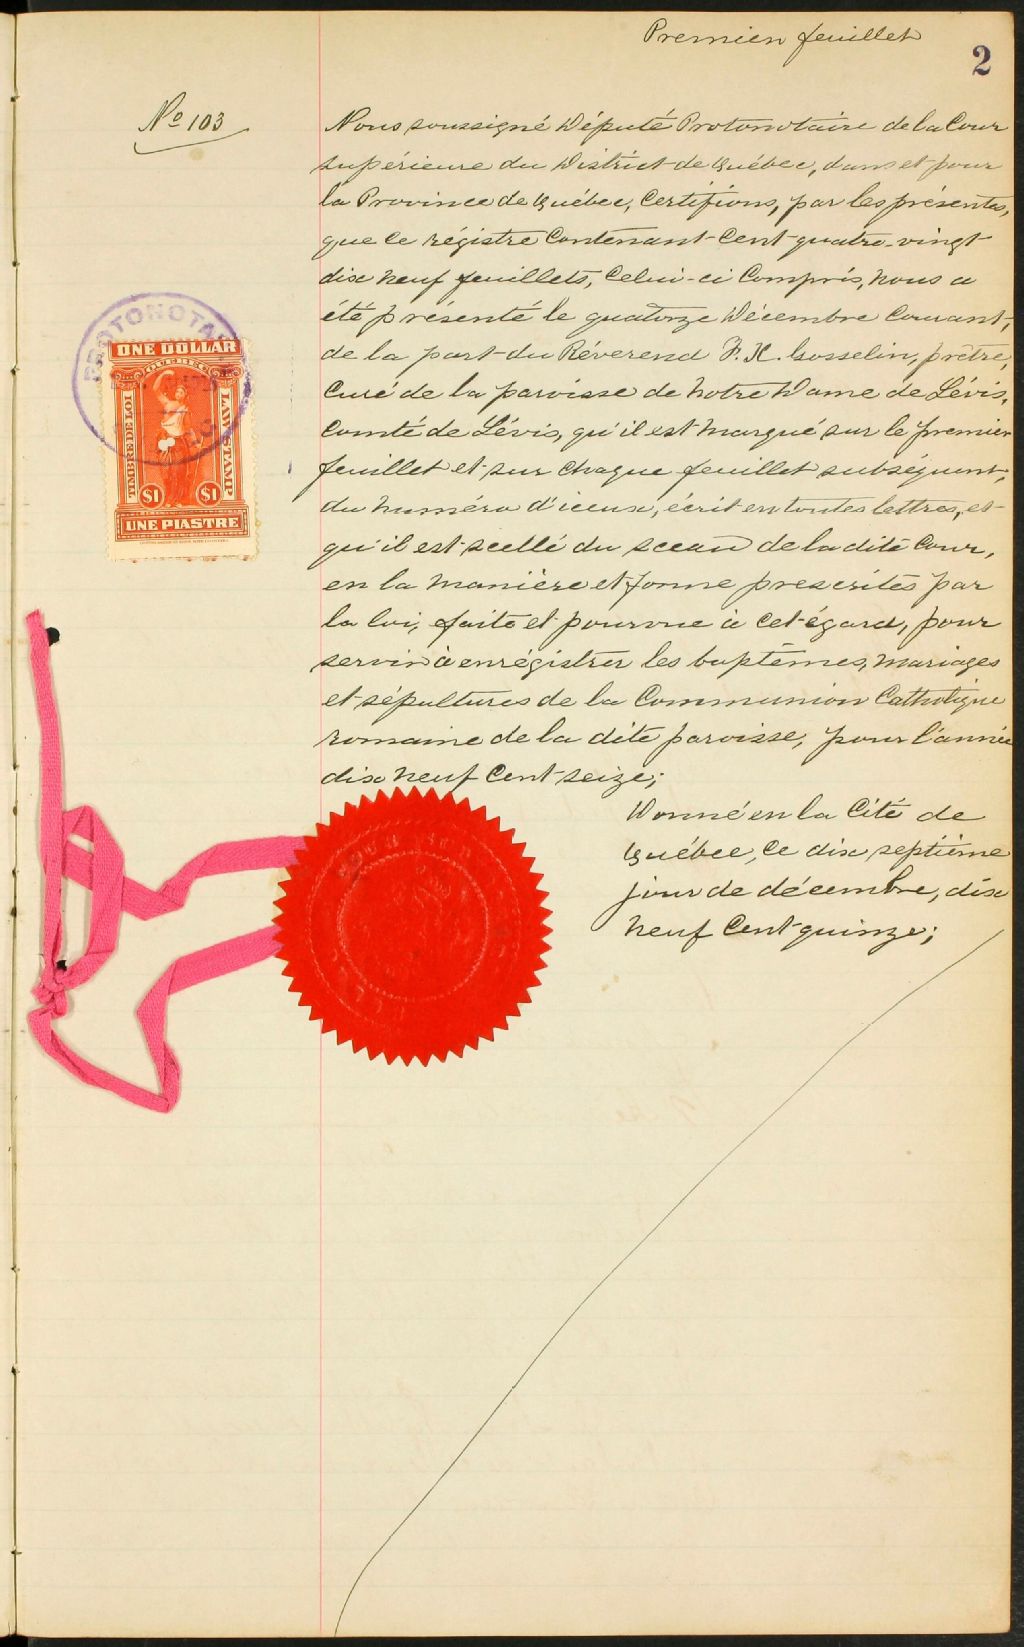 Premier feuillet
2
No 103
Nous soussigné Député Protonotaire de la Cour
supérieure du District de Québec, dans et pour
la Province de Québec, Certifions, par les présentes,
que ce régistre Contenant Cent quatre-vingt
dix neuf feuillets, Celui-ci Compris, nous a
été présenté le quatorze Décembre Courant,
de la part du Réverend F. X. Gosselin, prêtre,
Curé de la paroisse de Notre Dame de Lévis,
Comté de Lévis, qu'il est marqué sur le premier
feuillet et sur chaque feuillet subséquent,
du numéro d'iceux, écrit en toutes lettres, et
qu'il est scellé du sceau de la dite Cour,
en la manière et forme prescrites par
la loi, faite et pourvue à cet égard, pour
servir à enrégistrer les baptêmes, mariages
et sépultures de la Communion Catholique
romaine de la dite paroisse, pour l'année
dix neuf Cent seize;
Donné en la Cité de
Québec, Ce dix septième
jour de décembre, dix
neuf Cent quinze;
ONE DOLLAR
QUEBEC
TIMBRE DE LOI
LAW STAMP
$1 $1
UNE PIASTRE